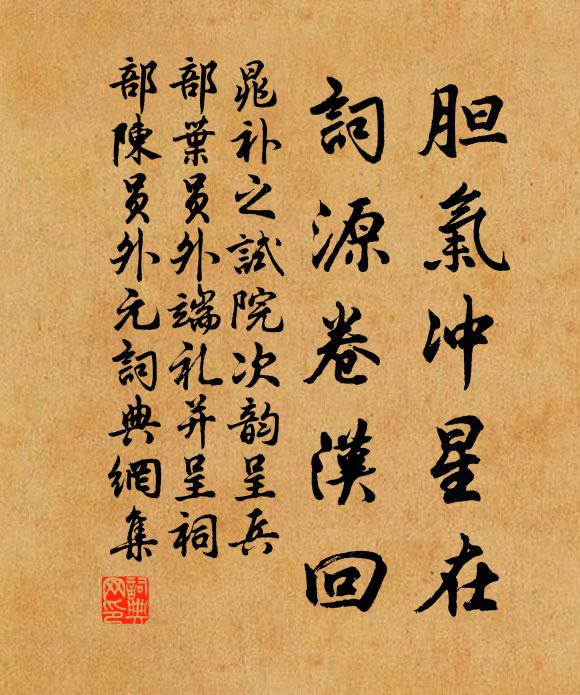 胆氣冲星在
詞源卷漢回
晁补之試院次韵呈兵
部葉員外端礼并呈祠
部陳員外元詞典網集
詞典
网印